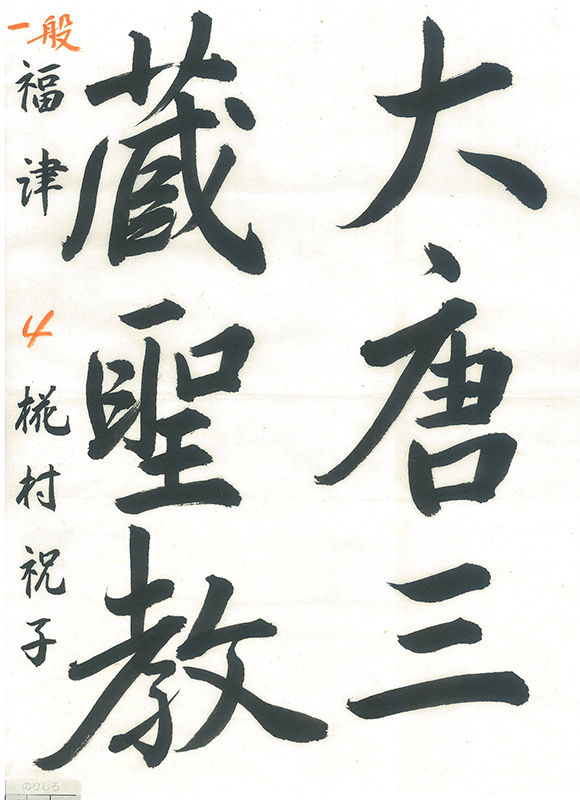 大唐三
蔵聖教
一般
福津
4
椛村祝子
のりしろ